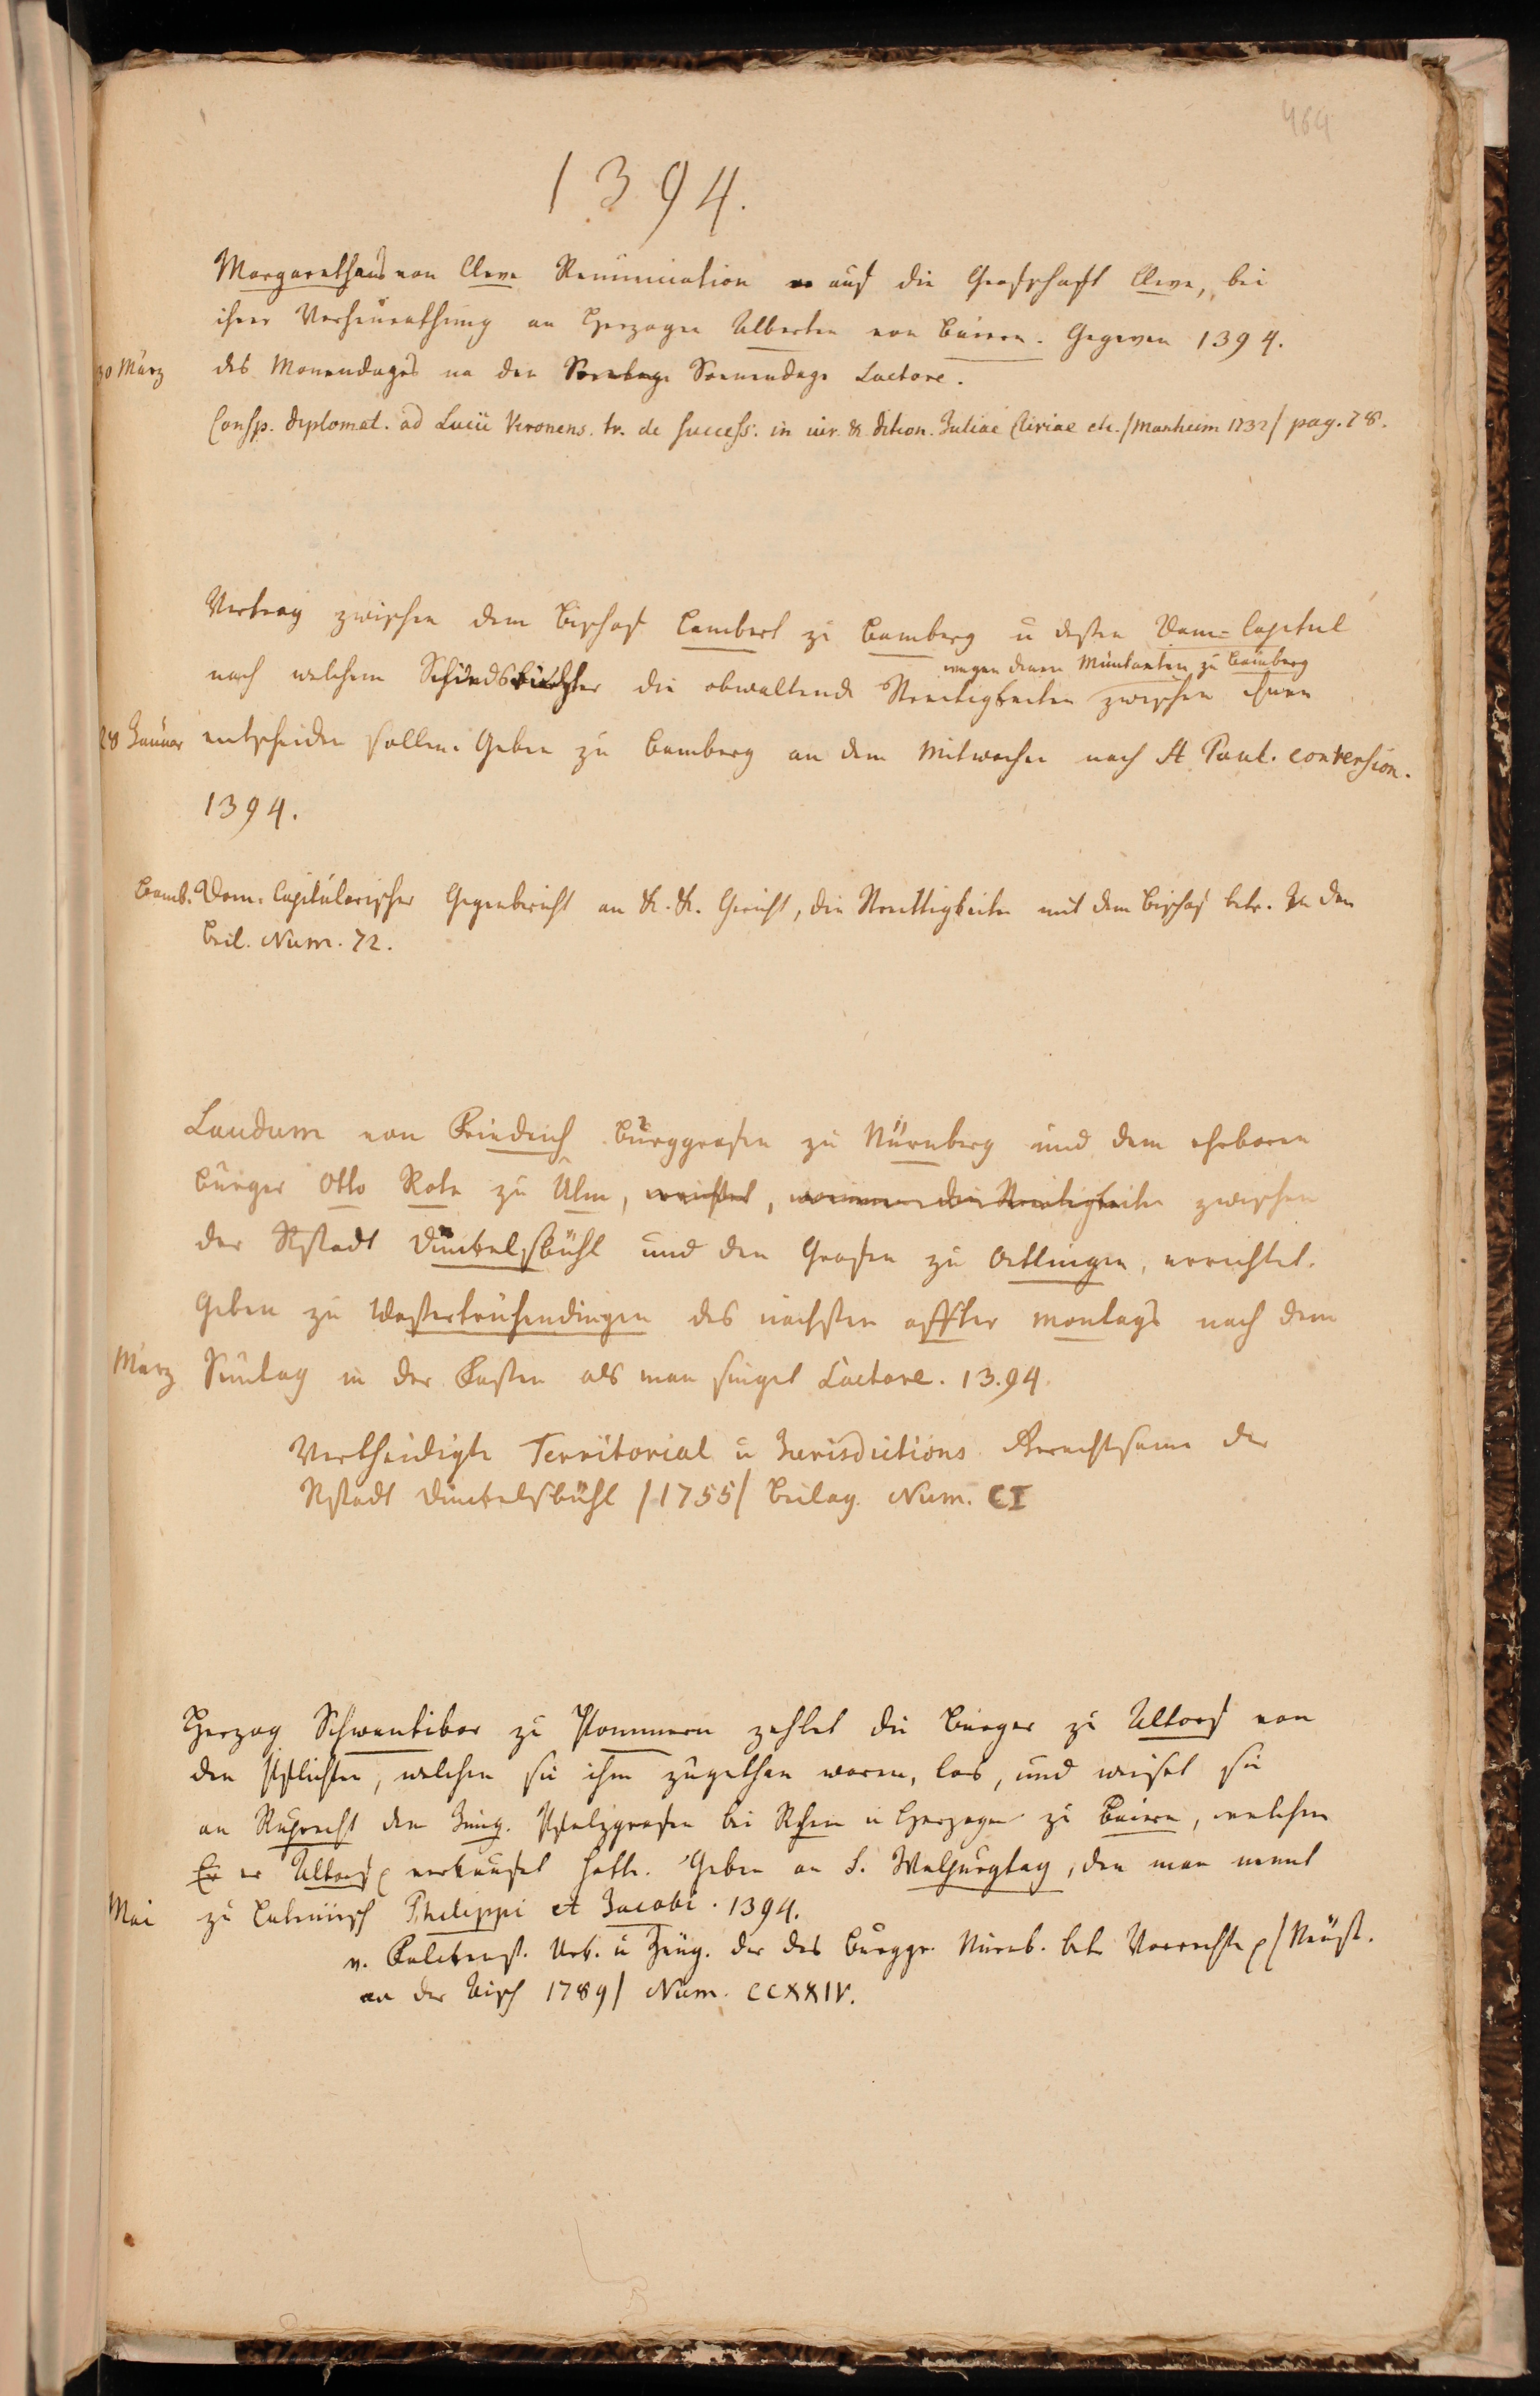 464
1394.
Margarethens von Cleve Renunciation auf die Grafschaft Cleve, bei
ihrer Verheurathung an Herzogen Alberten von Baiern. Gegeven 1394.
30 März des Monendages na den Sondage Sonnendage Laetare.
Consp. diplomat. ad Lucii Veronens. tr. de success. in iur. & dition. Juliae Cliviae etc. /Manheim 1732/ pag. 78.
Vertrag zwischen dem Bischof Lambert zu Bamberg u dessen Dom-Capitul
wegen denen Muntaten zu Bamberg
nach welchem Schiedsrichter die obwaltende Streitigkeiten zwischen ihnen
28 Januar entscheiden sollen. Geben zu Bamberg an dem Mitwochen nach St Paul. conversion.
1394.
Bamb. Dom-Capitularischer Gegenbericht an K. K. Gericht, die Streittigkeiten mit dem Bischof betr. In den
Beil. Num. 72.
Laudum von Friedrich Burggrafen zu Nürnberg und dem ehrbaren
burger Otto Rote zu Ulm, worinnen die Streitigkeiten zwischen
der Rstadt Dünkelsbühl und den Grafen zu Oettingen, errichtet.
Geben zu Wassertruhendingen des nächsten affter montags nach dem
März Suntag in der Fasten als man singet Laetare. 1394.
Vertheidigte Territorial u Jurisdictions Gerechtsame der
Rstadt Dünkelsbühl /1755/ Beilag. Num. CI
Herzog Schwantibor zu Pommern zehlet die Burger zu Altorf von
den Pflichten, welchen sie ihm zugethan waren, los, und weiset sie
an Ruprecht den Jung. Pfalzgrafen bei Rhein u Herzogen zu Baiern, welchem
Er er Altorf verkaufet hatte. Geben an S. Walpurgtag, den man nennt
Mai zu Lateinisch Philippi et Jacobi. 1394.
v. Falckenst. Urk. u Zeug. der des Burggr. Nürnb. betr Vorrechte /Neust.
an der Aisch 1789/ Num. CCXXIV.